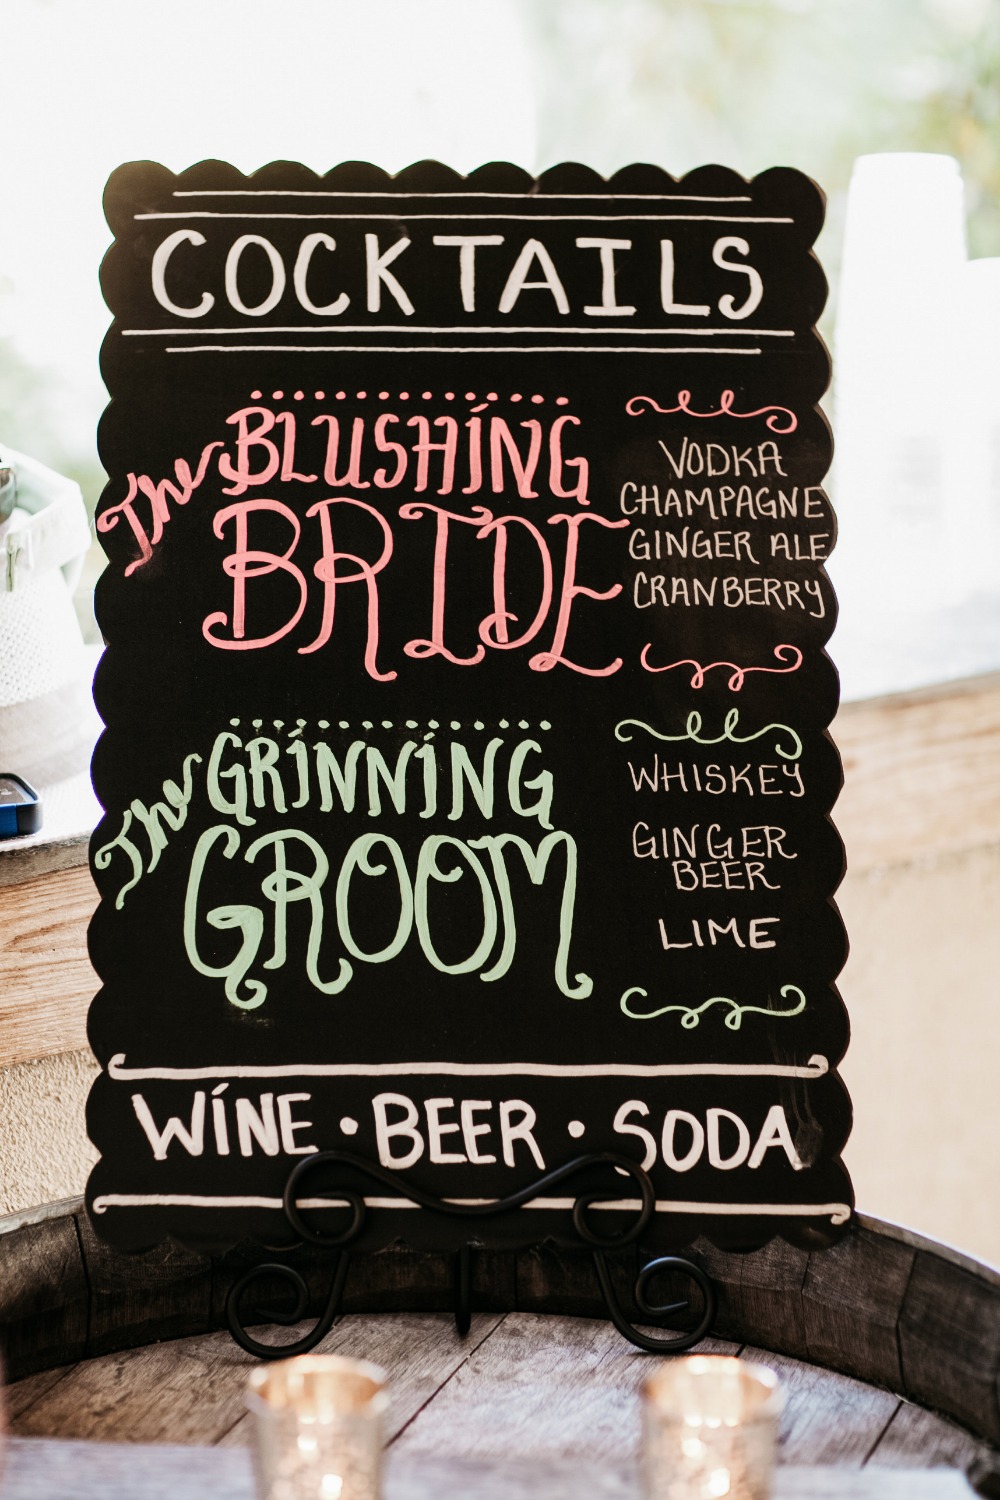 COCKTAILS
The BLUSHING
BRIDE
VODKA
CHAMPAGNE
GINGER ALE
CRANBERRY
The GRINNING
GROOM
WHISKEY
GINGER
BEER
LIME
WINE • BEER • SODA